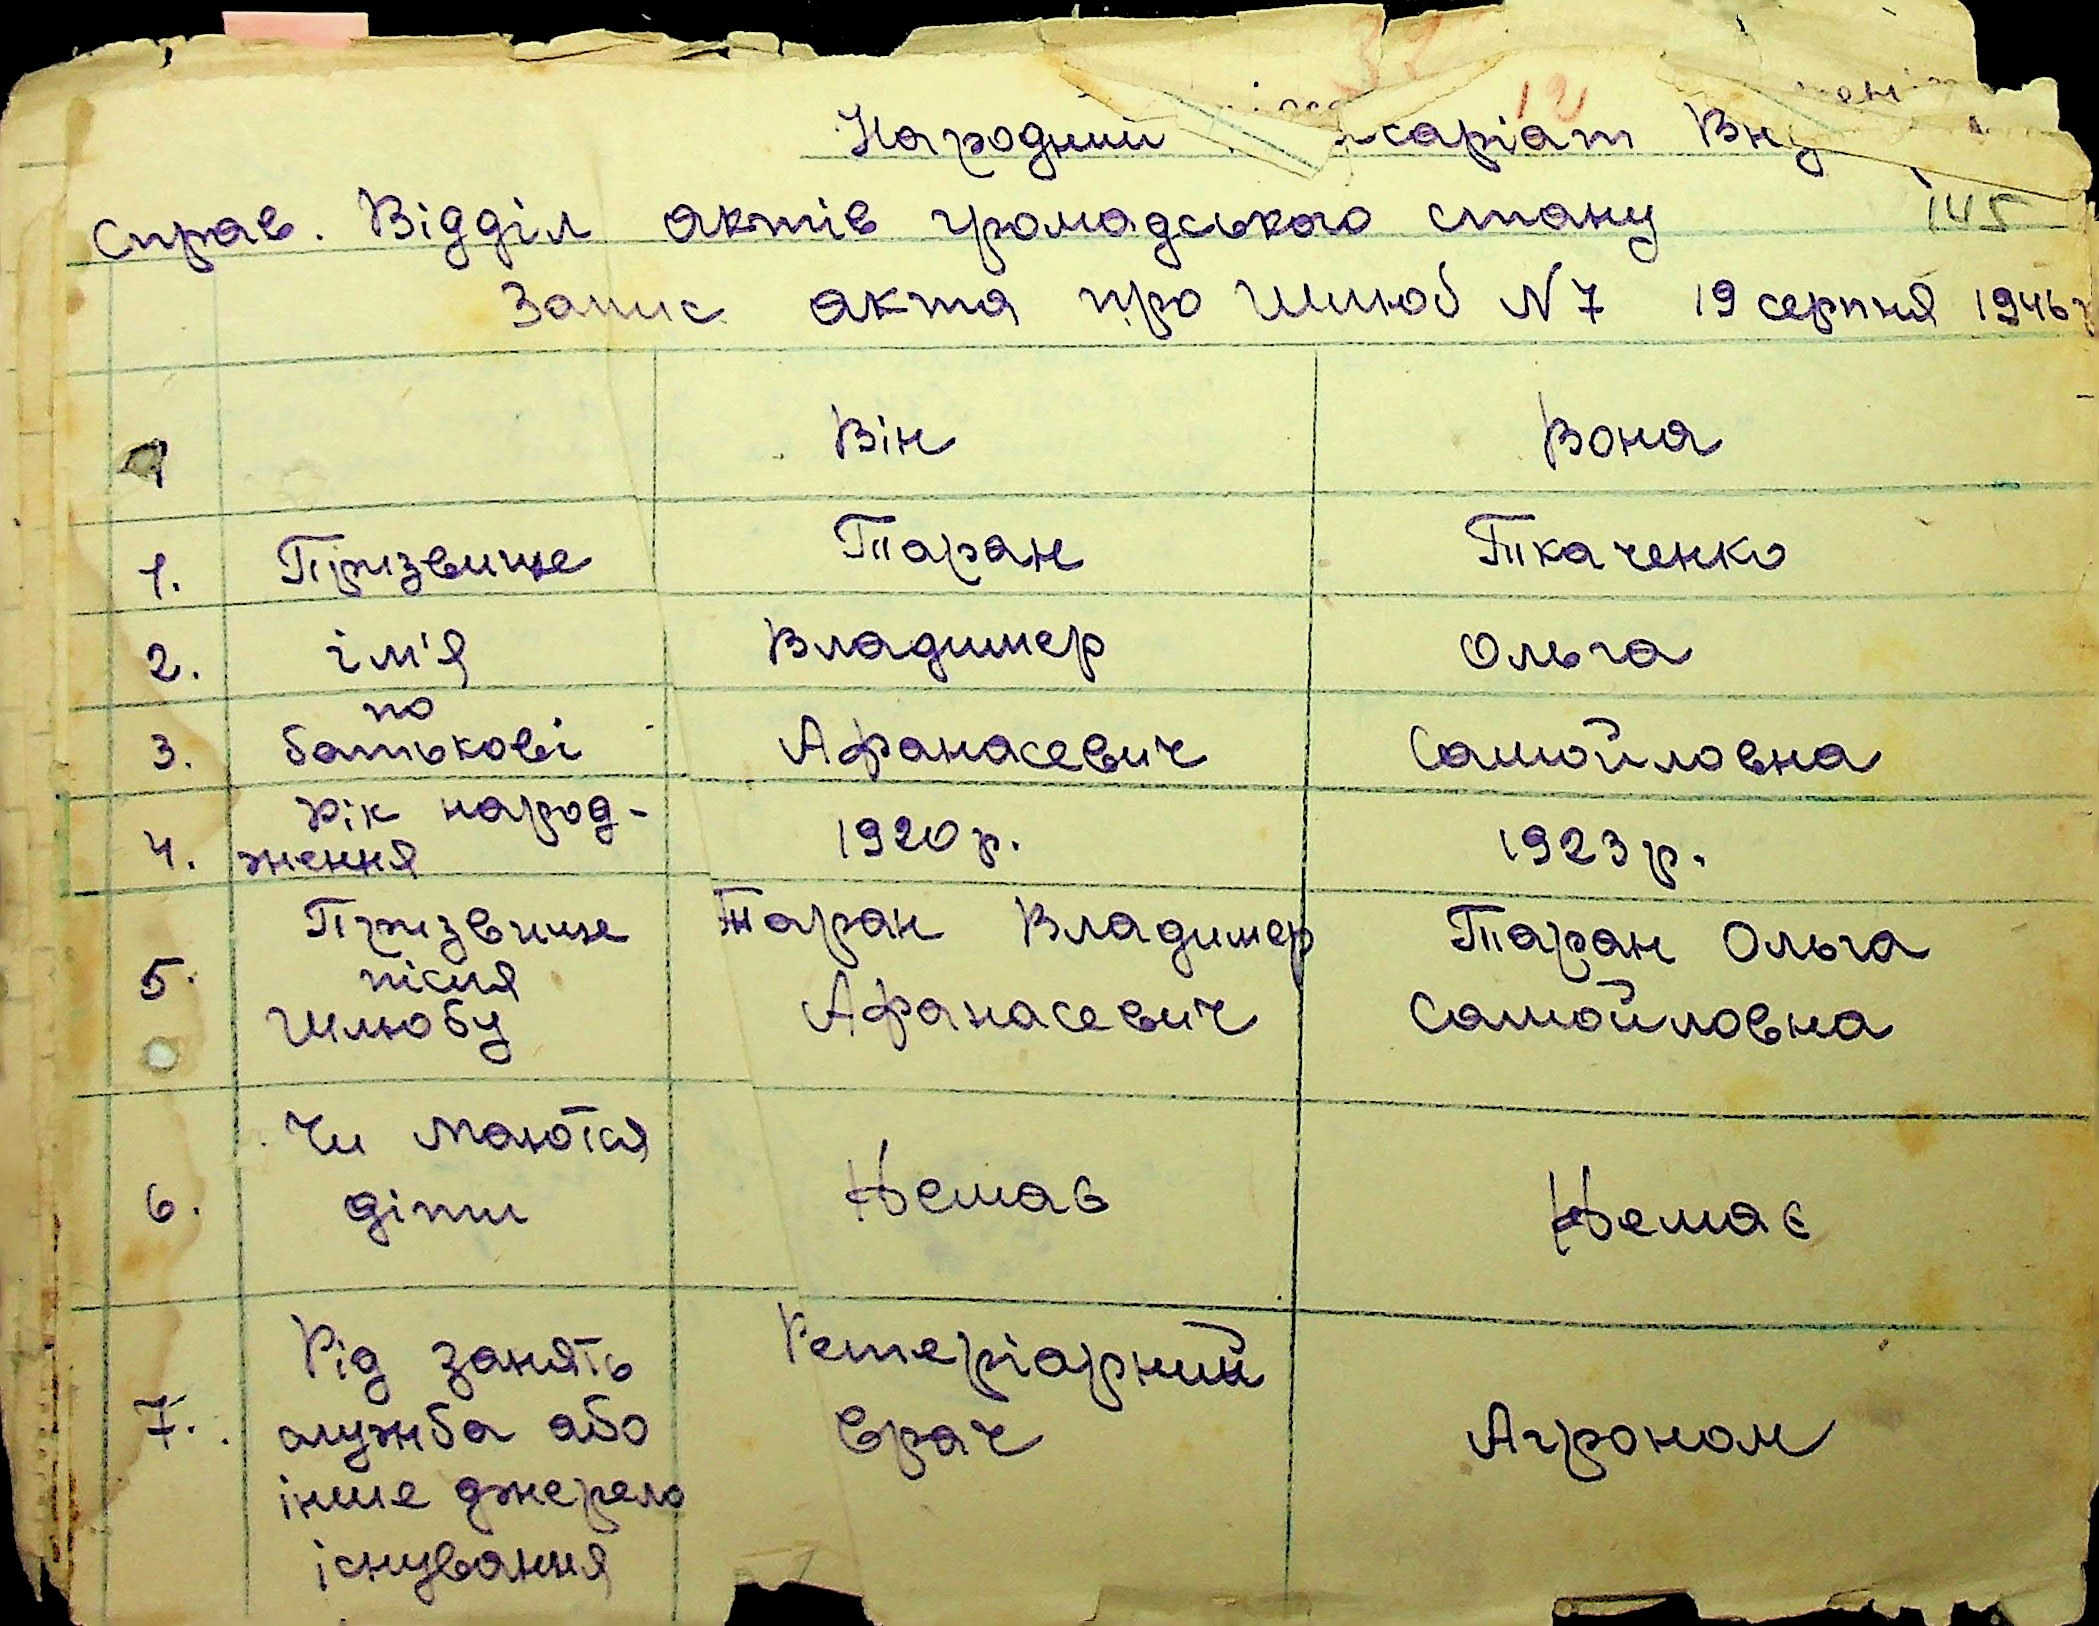 32
12
Народний саріат Вну
145
справ. Відділ актів громадського стану
Запис акта про шлюб N7 19 серпня 1946 р
Він Вона
1. Прізвище Таран Ткаченко
2. ім'я Владимер Ольга
3. по батькові Афанасевич Самойловна
4. Рік народ-
ження 1920 р. 1923 р.
5. Прізвище Таран Владимер Таран Ольга
після Афанасевич Самойловна
шлюбу
6. Чи маются
діти Немає Немає
7. Рід занять Ветеріарний
служба або врач Агроном
інше джерело
існування